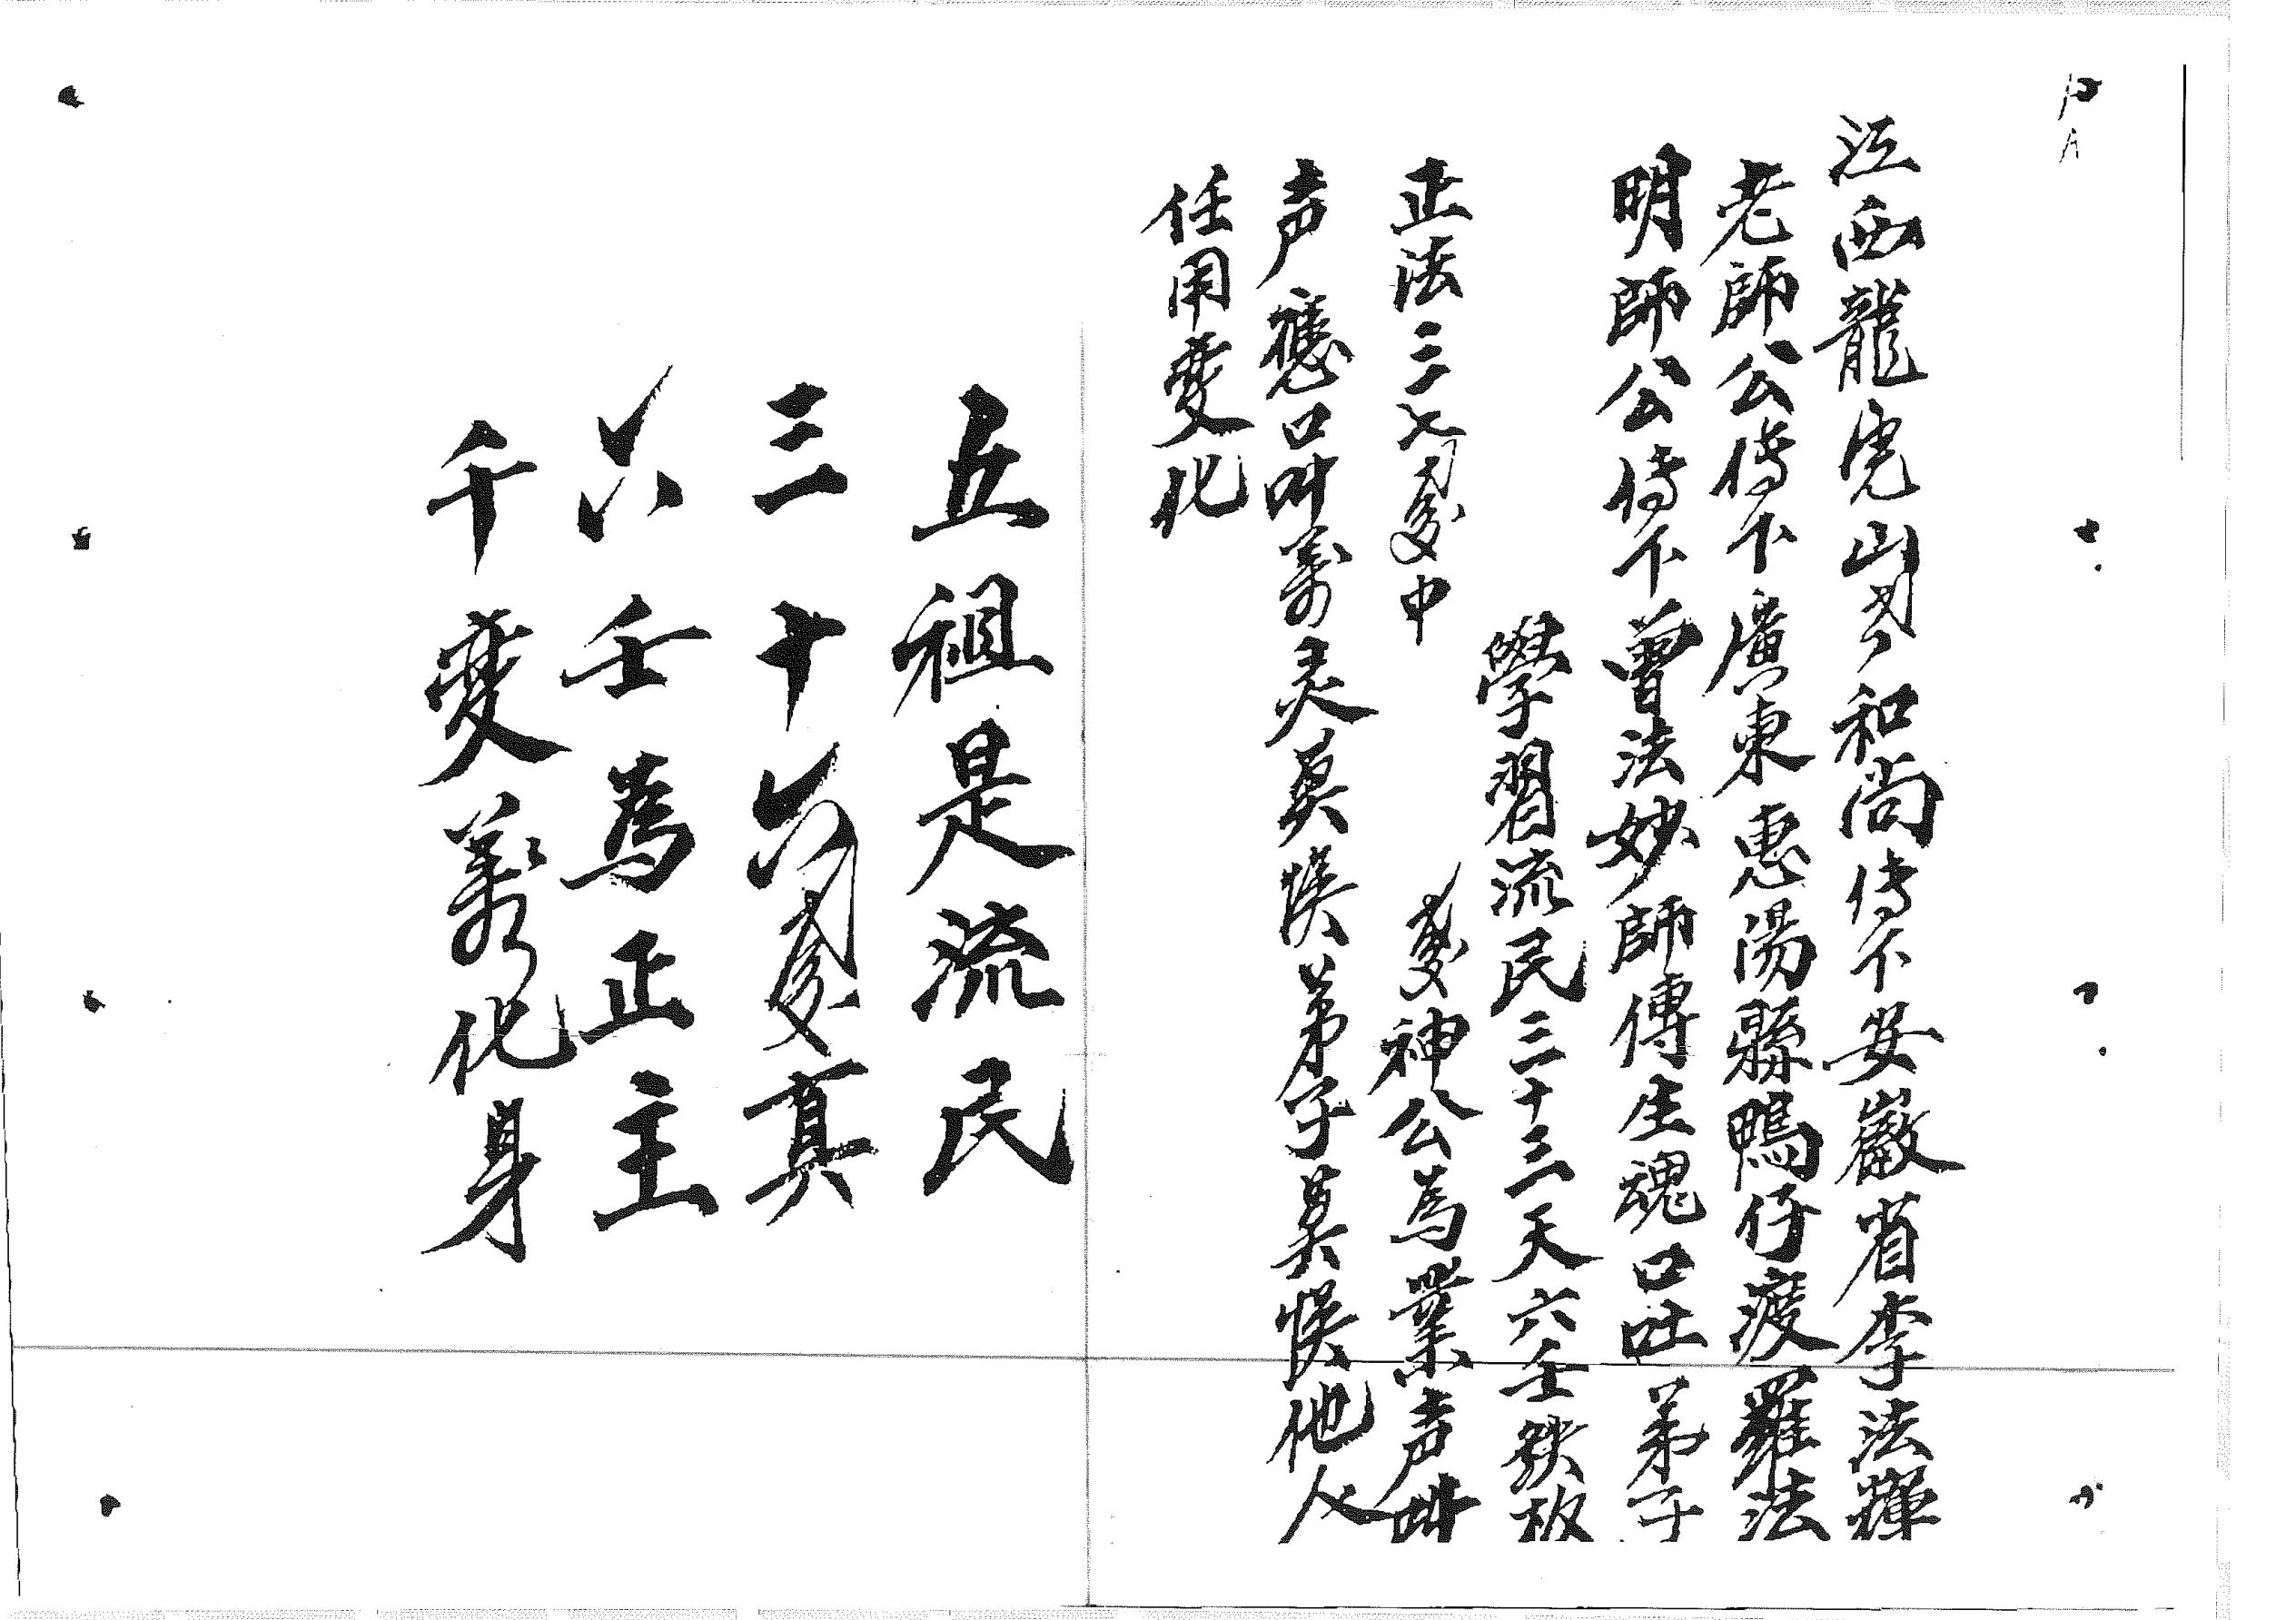 江西龍虎山 和尚傳下安徽省李法輝
老師公傳下廣東惠陽縣鴨仔渡羅法
明師公傳下曾法妙師傳生魂口吐弟子
學習流民三十三天六壬鉄板
正法三七変申 変神公為業声叫
声應口叫萬灵莫悮弟子莫悮他人
任用変化
五祖是流民
三十六 変真
六壬為正主
千変萬化身